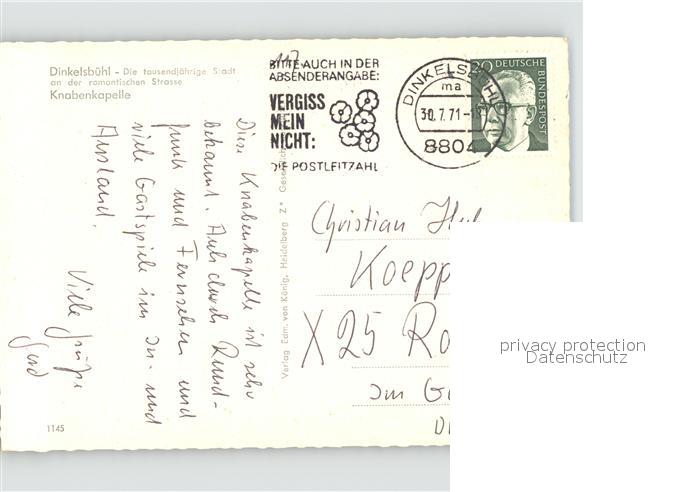 Dinkelsbühl - Die tausendjährige Stadt
an der romantischen Strasse
Knabenkapelle
117
BITTE AUCH IN DER
ABSENDERANGABE:
VERGISS
MEIN
NICHT:
DIE POSTLEITZAHL
DINKELSBÜHL
ma
30.7.71-1
8804
20 DEUTSCHE
BUNDESPOST
Diese Knabenkapelle ist sehr
bekannt. Auch durch Rund-
funk und Fernsehen und
viele Gastspiele im In- und
Ausland.
Viele Grüße
Gerd
Verlag Edm. von König, Heidelberg Z*
Christian
Koepp
X 25 Ro
Im G
D
1145
privacy protection
Datenschutz